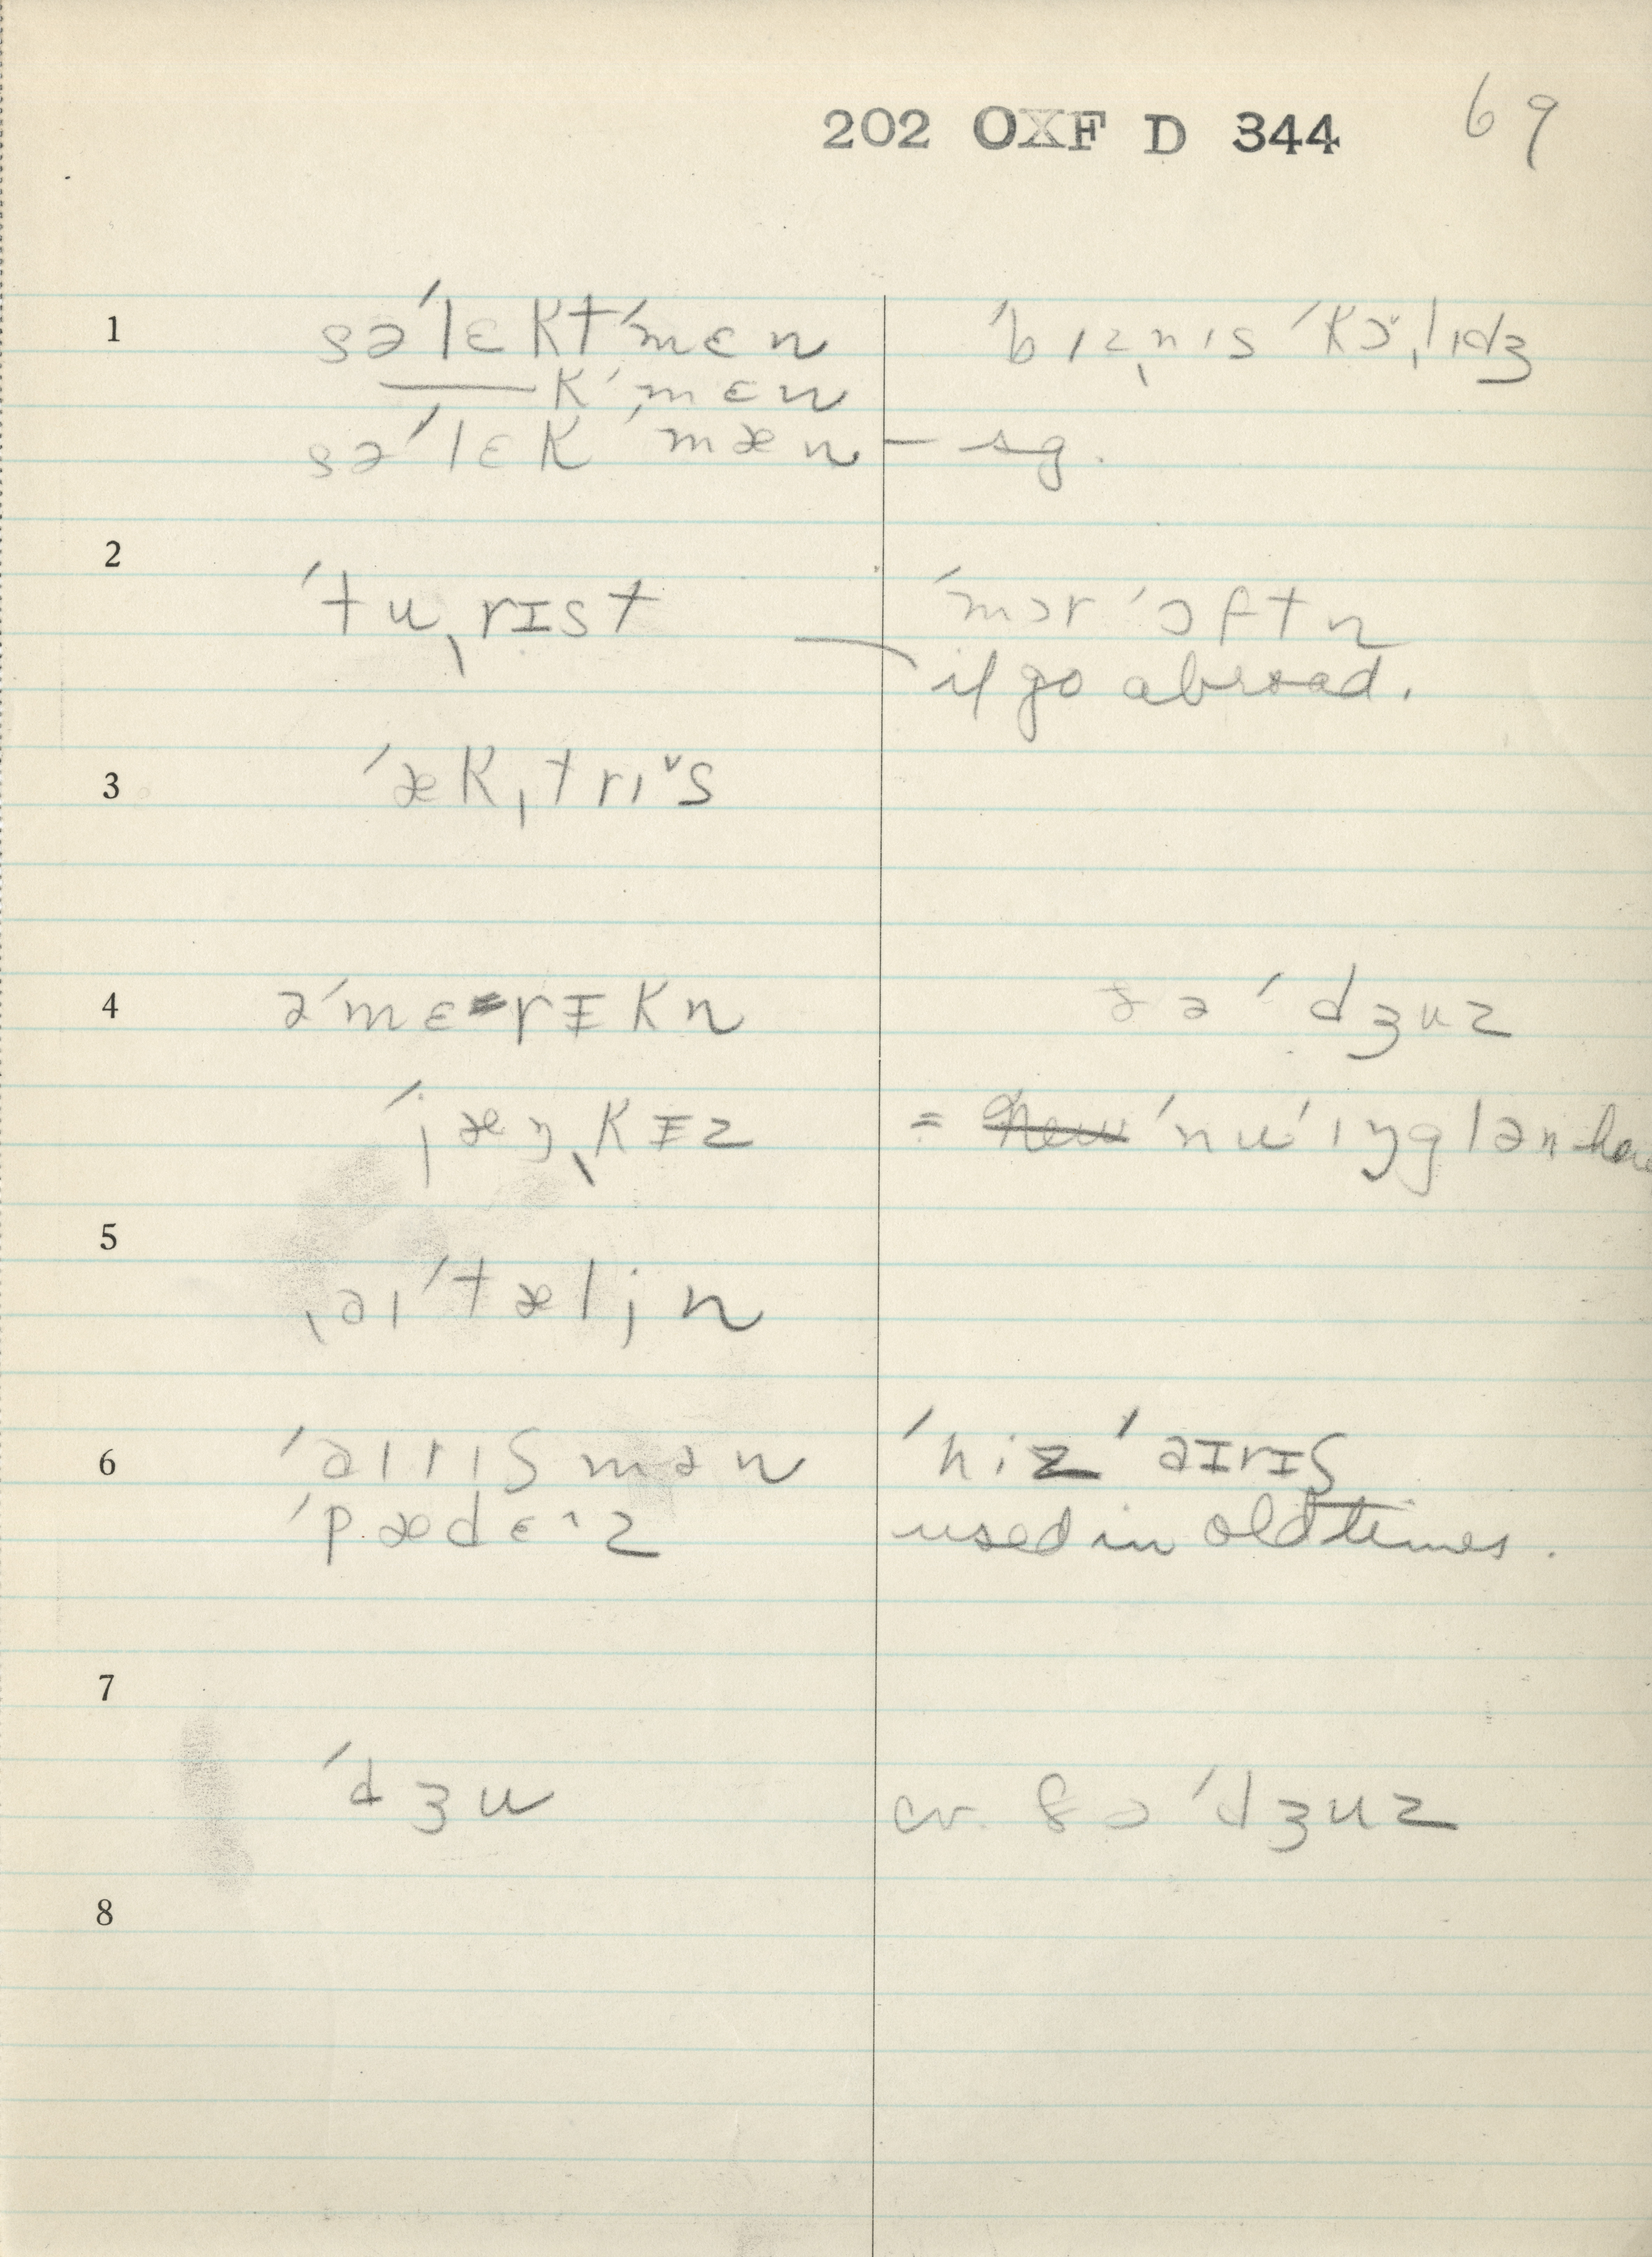 202 OXF D 344 69
1 sə'lɛkt'mɛn 'bɪzˌnɪs 'kɔˌlɪdʒ
——k'mɛn
sə'lɛk'mæn — sg.
2
'tuˌrɪst 'mɔr 'ɔftn
if go abroad.
3 'ækˌtrɪ˅s
4 ə'mɛrɪkn ðə 'dʒuz
'jæŋˌkɪz = new 'nu 'ɪŋglən here
5
ˌaɪ'tæljn
6 'aɪrɪʃmən 'hiz 'aɪrɪʃ
'pædɛ^z used in old times.
7
'dʒu cv. ðə 'dʒuz
8